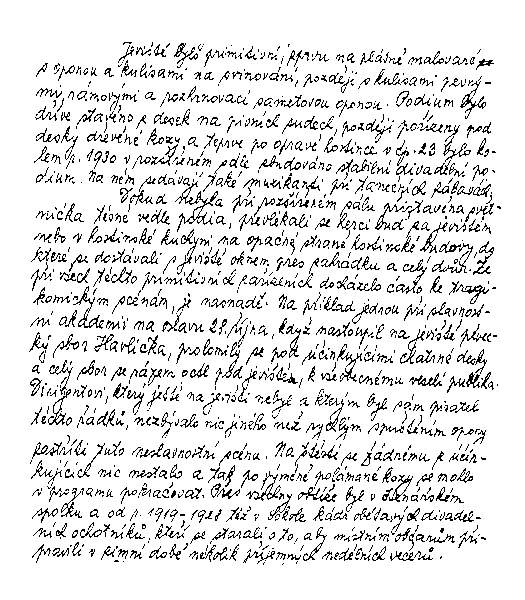 Jeviště bylo primitivní, zprvu na plátně malované
s oponou a kulisami na svinování, později s kulisami pevný-
mi, rámovými a roztrhovací sametovou oponou. Podium bylo
dříve stavěno z desek na pivních sudech, později pořízeny pod
desky dřevěné kozy a teprve po opravě hostince v čp. 23 bylo ko-
lem r. 1930 v rozšířeném sále zbudováno stabilní divadelní po-
dium. Na něm sedávají také muzikanti při tanečních zábavách.
Pokud nebyla při rozšířeném sálu přistavěna svět-
nička těsně vedle podia, převlékali se herci buď za jevištěm
nebo v hostinské kuchyni na opačné straně hostinské budovy, do
které se dostávali s jeviště oknem přes zahrádku a celý dvůr. Že
při všech těchto primitivních zařízeních docházelo často ke tragi-
komickým scénám, je nasnadě. Na příklad jednou při slavnost-
ní akademii na oslavu 28. října, když nastoupil na jeviště pěvec-
ký sbor Havlíčka, prolomily se pod účinkujícími chatrné desky
a celý sbor se rázem octl pod jevištěm, k všeobecnému veselí publika.
Dirigentovi, který ještě na jevišti nebyl a kterým byl sám pisatel
těchto řádků, nezbývalo nic jiného než rychlým spuštěním opony
zastříti tuto neslavnostní scénu. Na štěstí se žádnému z účin-
kujících nic nestalo a tak po výměně polámané kozy se mohlo
v programu pokračovat. Přes všechny obtíže byl v Čtenářském
spolku a od r. 1919-1928 též v Sokole kádr obětavých divadel-
ních ochotníků, kteří se starali o to, aby místním občanům při-
pravili v zimní době několik příjemných nedělních večerů.